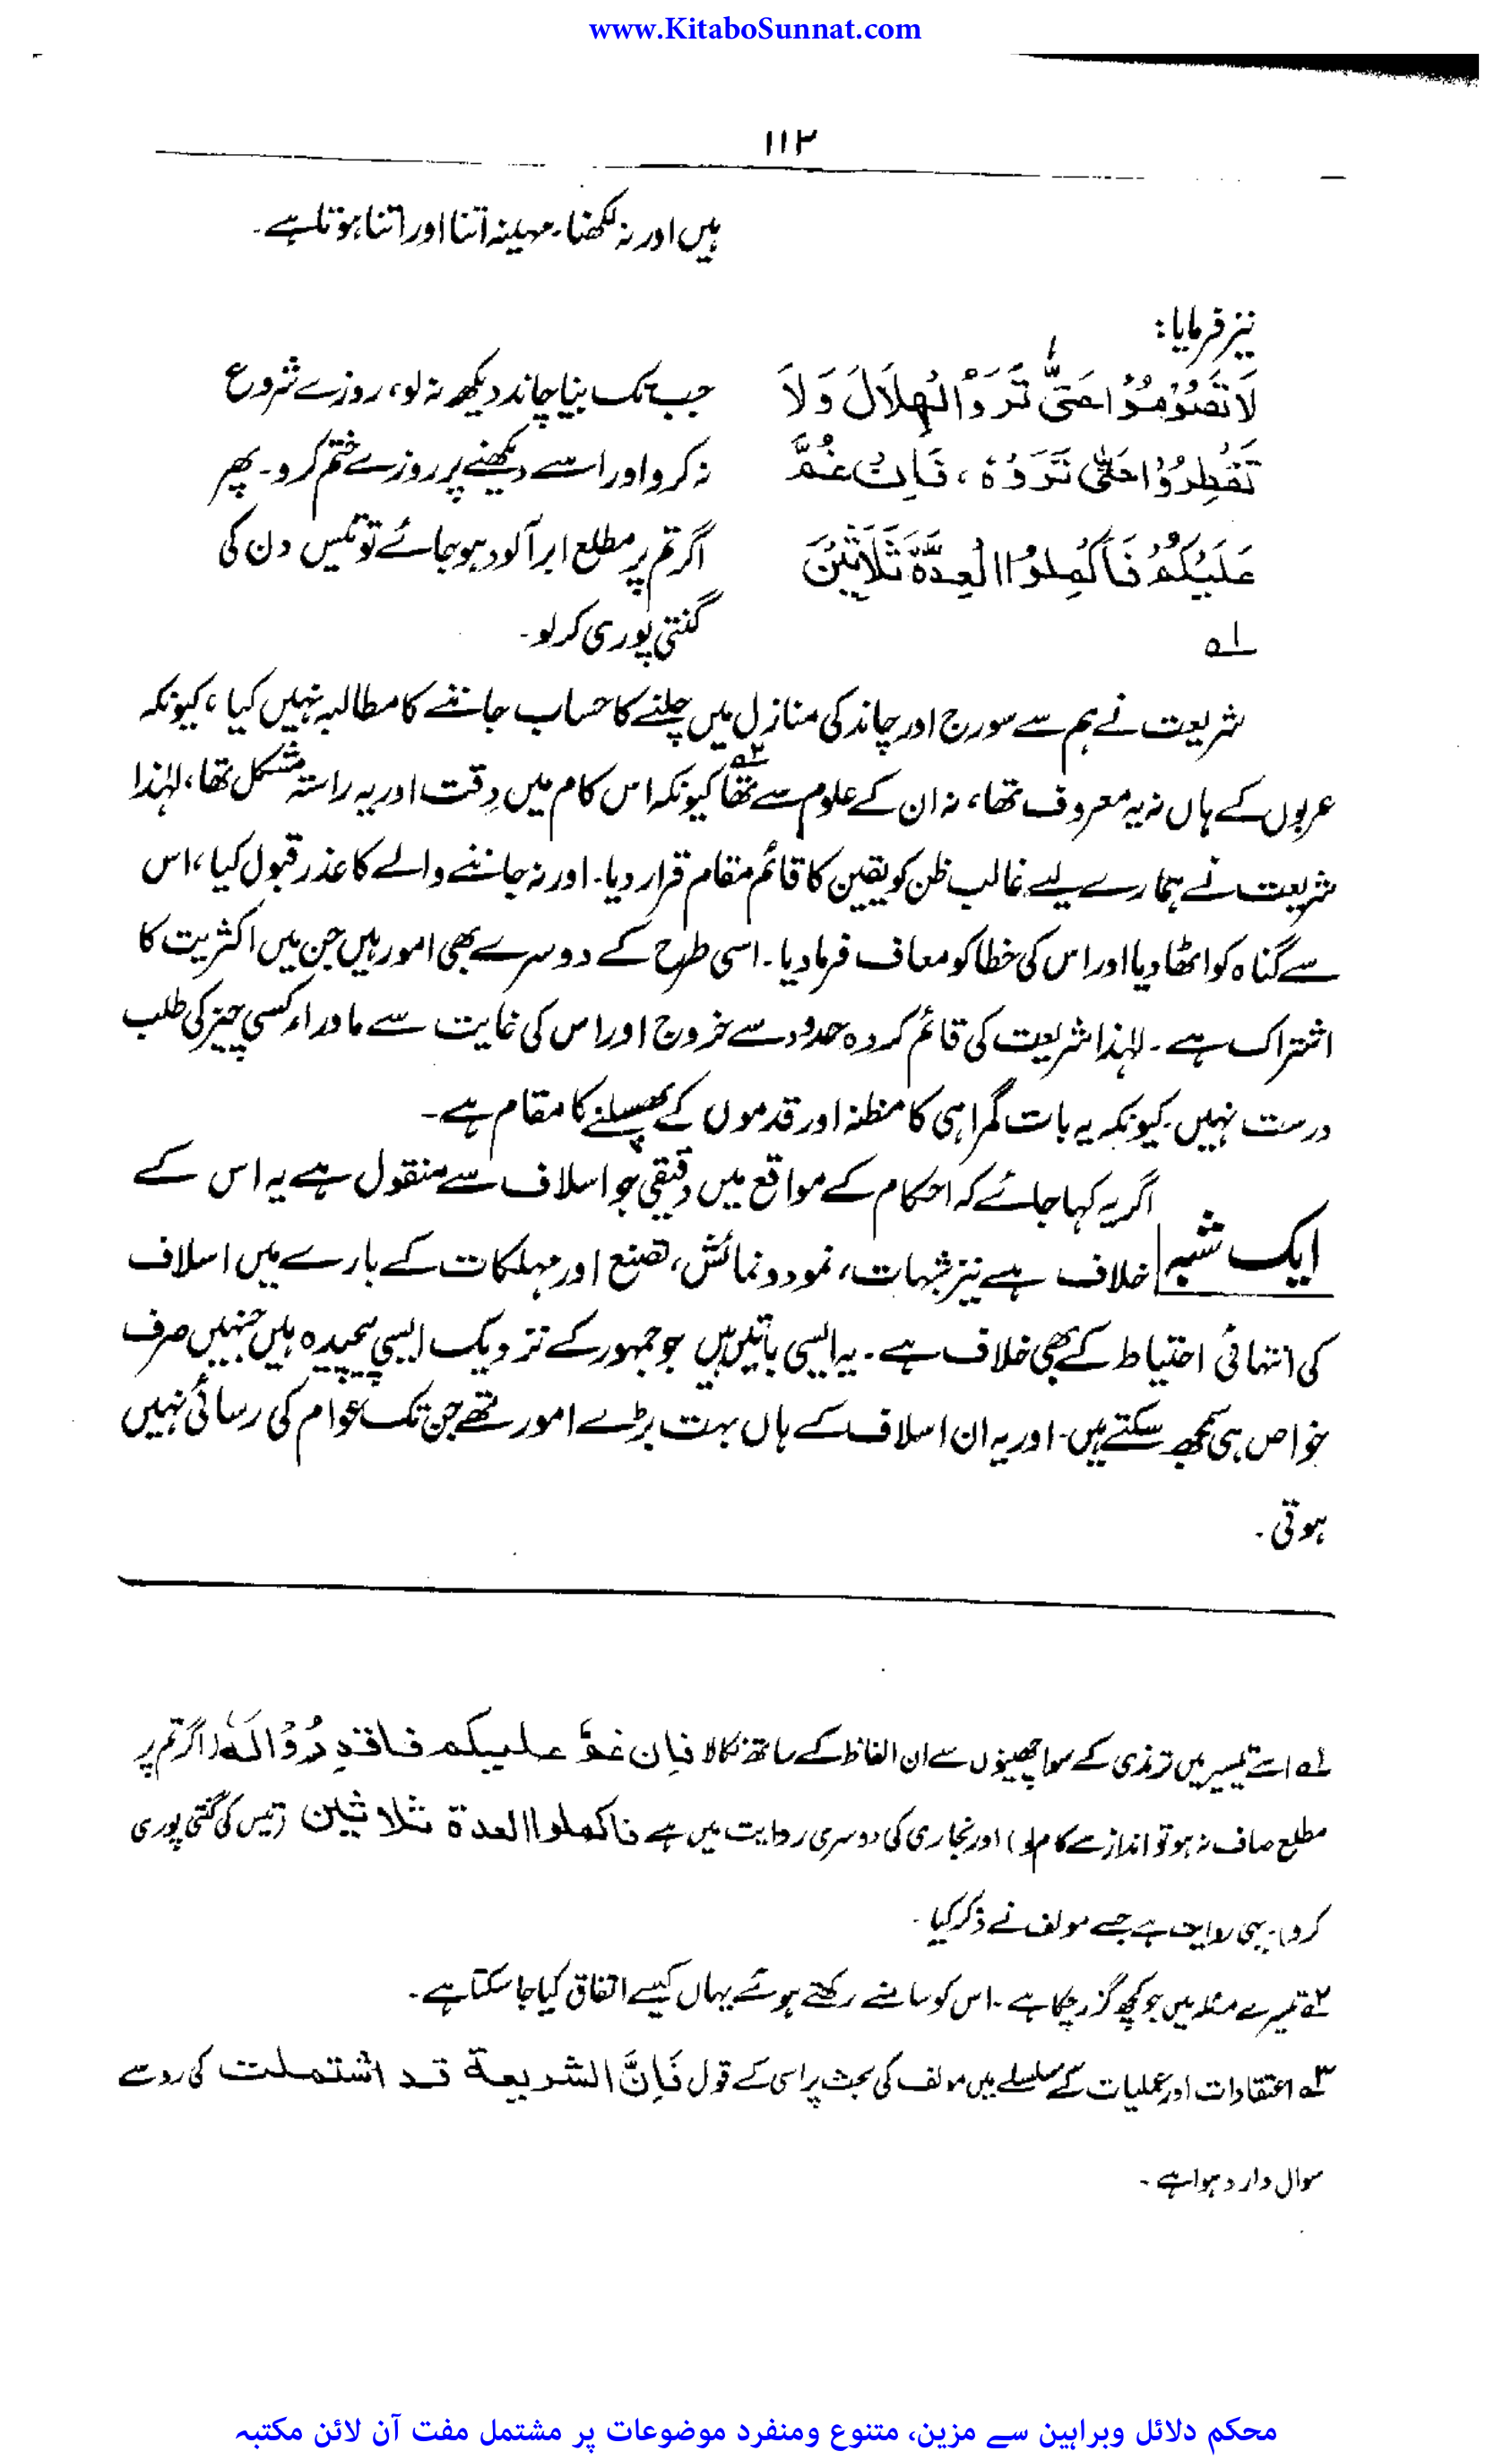 www.KitaboSunnat.com
۱۱۲
ہیں اور نہ لکھنا۔ مہینہ اتنا اور اتنا ہوتا ہے۔
نیز فرمایا:
لَا تَصُوْمُوْا حَتّٰی تَرَوُا الْهِلَالَ وَلَا
جب تک نیا چاند دیکھ نہ لو، روزے شروع
تَفْطِرُوْا حَتّٰی تَرَوْهُ، فَاِنْ غُمَّ
نہ کرو اور اسے دیکھنے پر روزے ختم کرو۔ پھر
عَلَیْکُمْ فَاَکْمِلُوا الْعِدَّةَ ثَلَاثِیْنَ
اگر تم پر مطلع ابر آلود ہو جائے تو تیس دن کی
لہ
گنتی پوری کر لو۔
شریعت نے ہم سے سورج اور چاند کی منازل میں چلنے کا حساب جاننے کا مطالبہ نہیں کیا، کیونکہ
عربوں کے ہاں نہ یہ معروف تھا، نہ ان کے علوم سے تھا ۲ہ کیونکہ اس کام میں دقت اور یہ راستہ مشکل تھا، لہٰذا
شریعت نے ہمارے لیے غالب ظن کو یقین کا قائم مقام قرار دیا۔ اور نہ جاننے والے کا عذر قبول کیا، اس
سے گناہ کو اٹھا دیا اور اس کی خطا کو معاف فرما دیا۔ اسی طرح کے دوسرے بھی امور ہیں جن میں اکثریت کا
اشتراک ہے۔ لہٰذا شریعت کی قائم کردہ حدود سے خروج اور اس کی غایت سے ماوراء کسی چیز کی طلب
درست نہیں۔ کیونکہ یہ بات گمراہی کا مظنہ اور قدموں کے پھسلنے کا مقام ہے۔
ایک شبہ
اگر یہ کہا جائے کہ احکام کے مواقع میں دقیقی جو اسلاف سے منقول ہے یہ اس کے
خلاف ہے نیز شبہات، نمود و نمائش، تصنع اور مہلکات کے بارے میں اسلاف
کی انتہائی احتیاط کے بھی خلاف ہے۔ یہ ایسی باتیں ہیں جو جمہور کے نزدیک ایسی پیچیدہ ہیں جنہیں صرف
خواص ہی سمجھ سکتے ہیں۔ اور یہ ان اسلاف کے ہاں بہت بڑے امور تھے جن تک عوام کی رسائی نہیں
ہوتی۔
لہ اسے تیسیر میں ترمذی کے سوا چھیئوں سے ان الفاظ کے ساتھ نکالا فَاِن غُمَّ علیکم فاقدِرُوْا لَهٗ (اگر تم پر
مطلع صاف نہ ہو تو اندازے سے کام لو) اور بخاری کی دوسری روایت میں ہے فاکملوا العدة ثلاثین (تیس کی گنتی پوری
کرو)۔ یہی روایت ہے جسے مولف نے ذکر کیا۔
۲ہ تیسرے مسئلہ میں جو کچھ گزر چکا ہے۔ اس کو سامنے رکھتے ہوئے یہاں کیسے اتفاق کیا جا سکتا ہے۔
۳ہ اعتقادات اور عملیات کے سلسلے میں مولف کی بحث پر اسی کے قول فَاِنَّ الشریعة قد اشتملت کی رو سے
سوال وارد ہوا ہے۔
محکم دلائل وبراہین سے مزین، متنوع ومنفرد موضوعات پر مشتمل مفت آن لائن مکتبہ